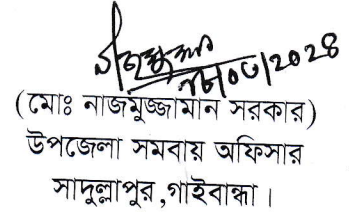 (মোঃ নাজমুজ্জামান সরকার)
উপজেলা সমবায় অফিসার
সাদুল্লাপুর,গাইবান্ধা।